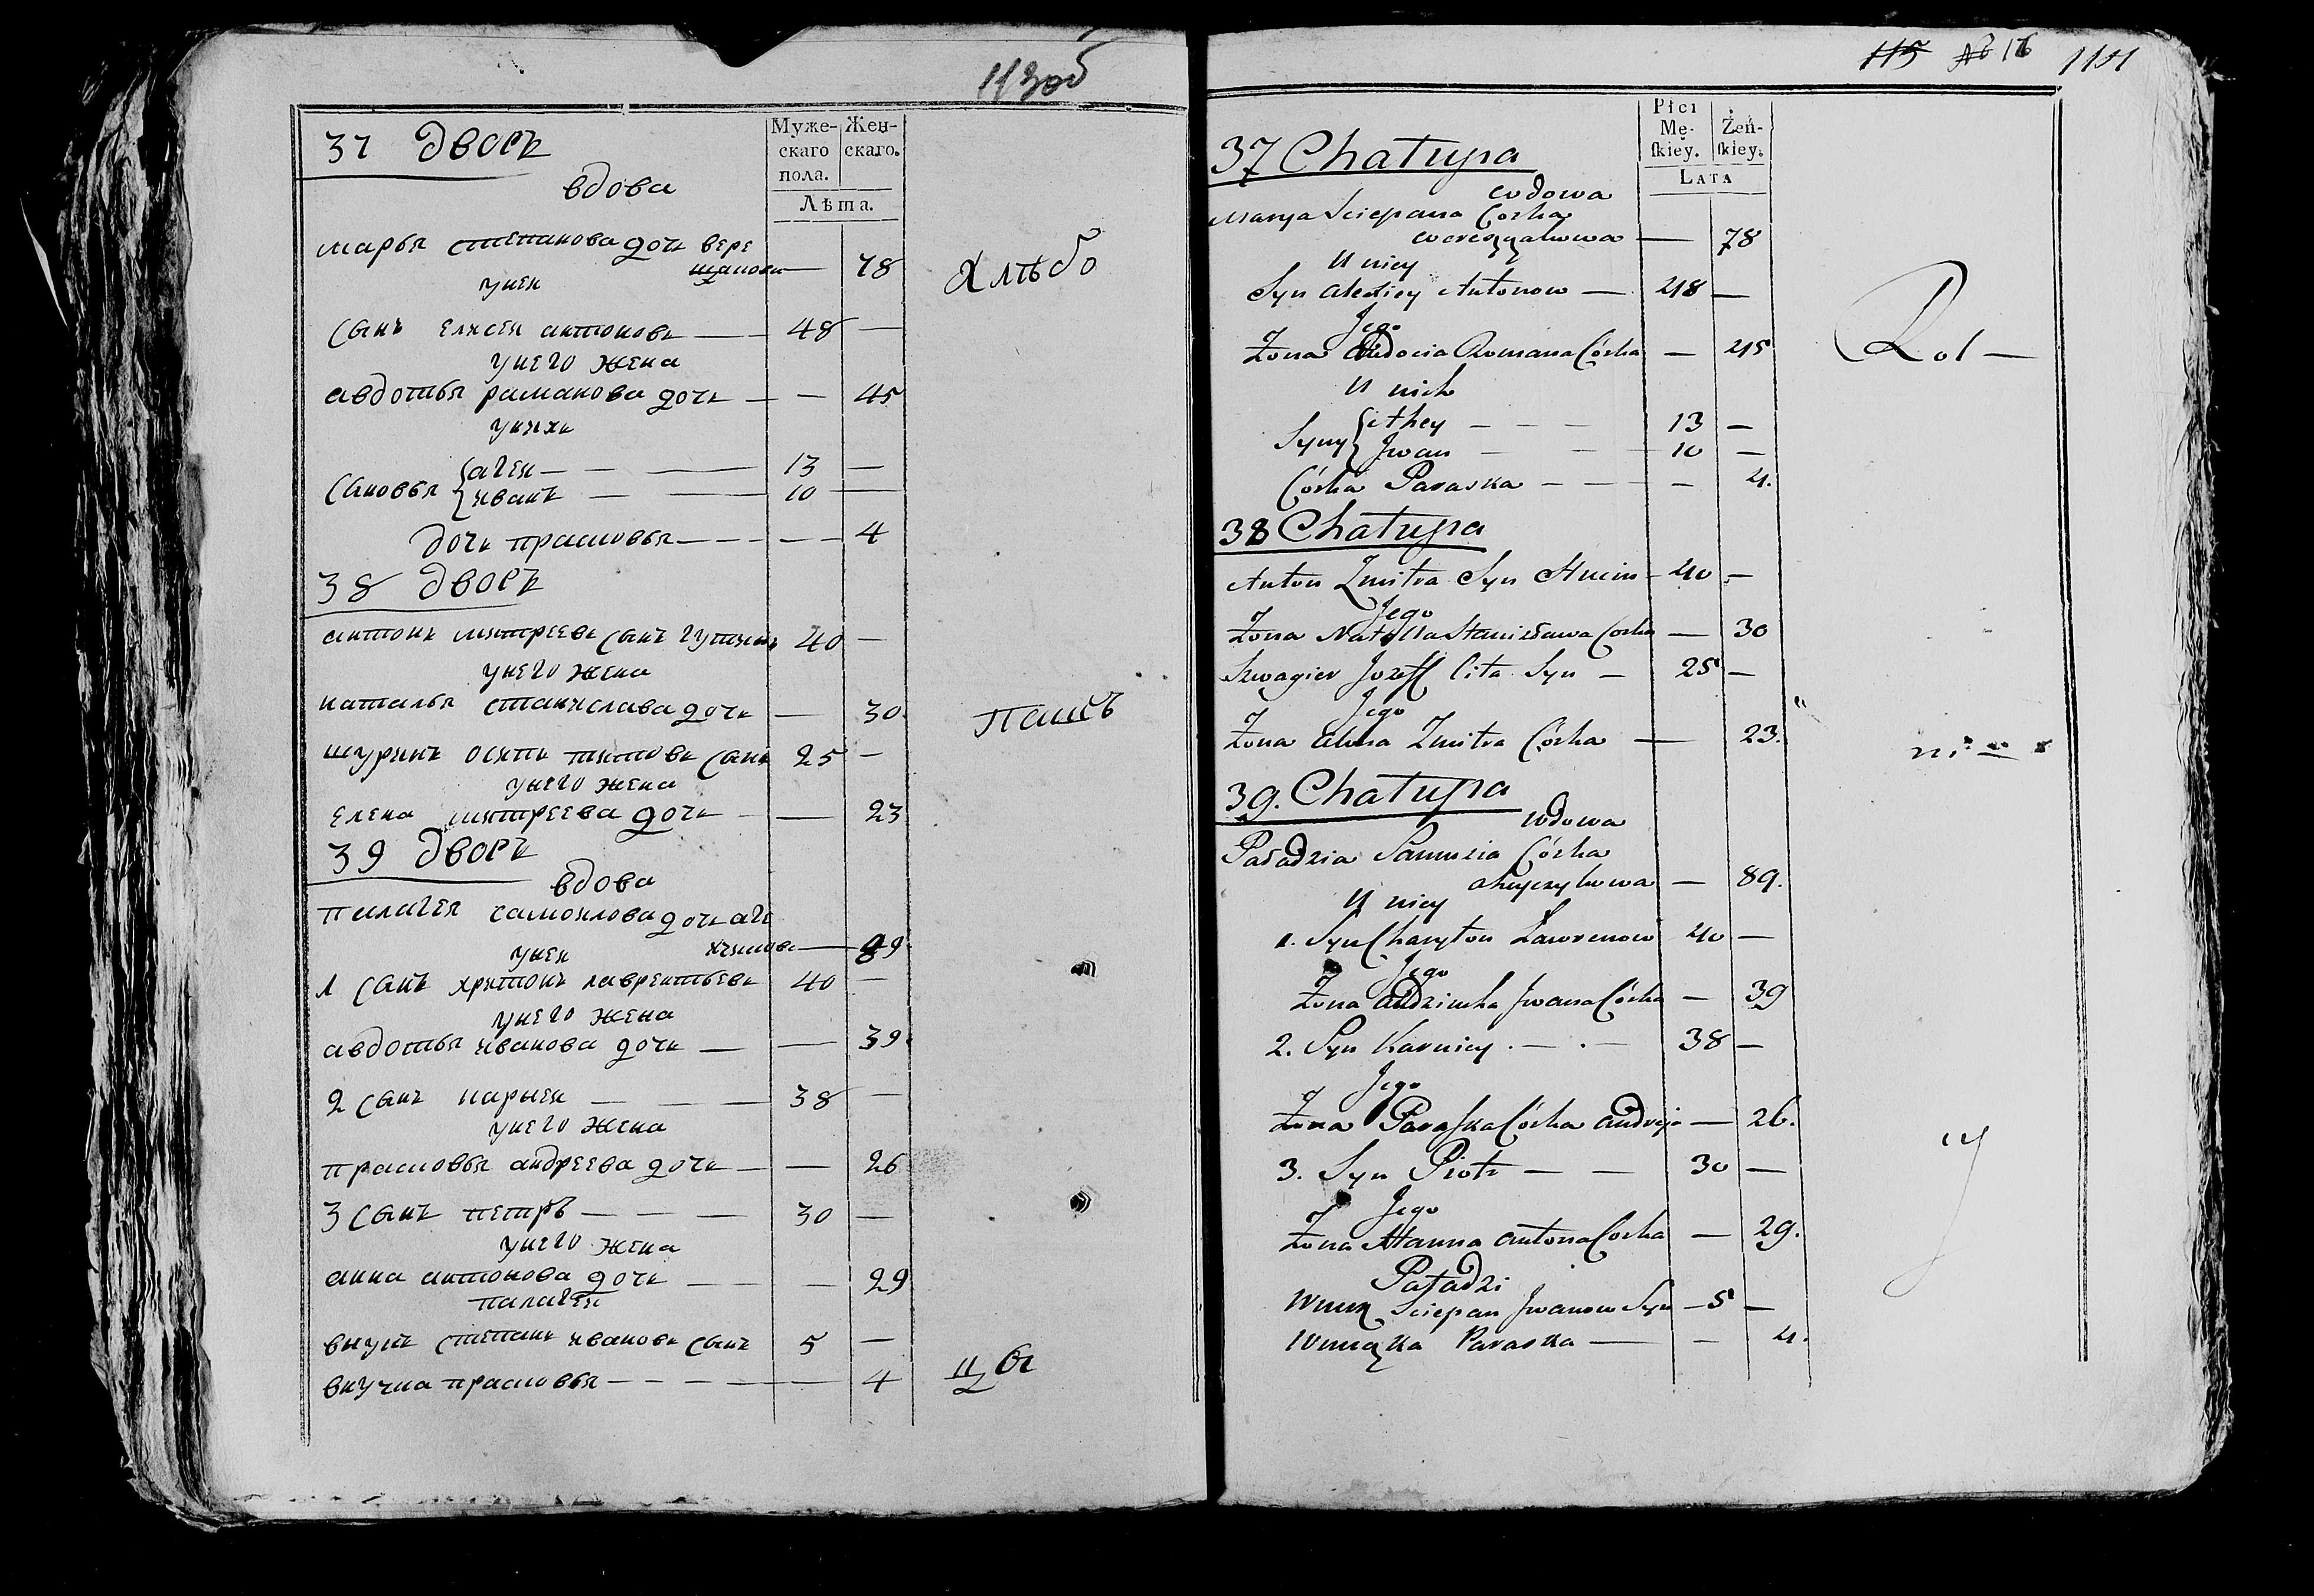 113об
37 дворъ
Муже-
скаго
пола.
Жен-
скаго.
Лѣта.
вдова
марья степанова дочь вере
щакова — 78
унея
сынъ елисей антоновъ — 48 —
унего жена
авдотья раманова дочь — — 45
унихъ
сыновья { агей — — — 13 —
иванъ — — 10 —
дочь прасковья — — — — — 4
38 дворъ
антонъ митреевъ сынъ 40 —
унего жена
наталья станислава дочь — 30
шуринъ осипъ титовъ сынъ 25 —
унего жена
елена митреева дочь — — 23
39 дворъ
вдова
пилагея самоилова дочь
унея
1 сынъ хритонъ лаврентьевъ 40 —
унего жена
авдотья иванова дочь — — 39
2 сынъ карней — — — 38 —
унего жена
прасковья андреева дочь — — 26
3 сынъ петръ — — — 30 —
унего жена
анна антонова дочь — — — 29
палагеи
внукъ степанъ ивановъ сынъ 5 —
внучка прасковья — — — — — 4
хлѣбо
пашъ
цы
115 16 114
37 Chałupa
Płci
Mę-
ſkiey.
Żeń-
ſkiey.
LATA
wdowa
Marya Sciepana Corka
wereszczakowa — 78
U niey
Syn Alexiey Antonow — 48 —
Jego
Żona Audocia Romana Córka — 45
U nich
Syny { Ahey — — — 13 —
Jwan — — 10 —
Córka Paraska — — — — 4.
38 Chałupa
Anton Zmitra Syn 40 —
Jego
Żona Natalla Stanisława Corka — 30
Szwagier Jozeff Cita Syn — 25 —
Jego
Żona Alena Zmitra Córka — 23.
39. Chałupa
wdowa
Paładzia Samusia Córka
— 89.
U niey
1. Syn Charyton Ławrenow 40 —
Jego
Żona Jwana Córka — 39
2. Syn Karniey — — 38 —
Jego
Żona Paraſka Córka Andreja — 26.
3. Syn Piotr — — 30 —
Jego
Żona Hanna Antona Corka — 29.
Paładzi
Wnuk Sciepan Jwanow Syn — 5 —
Wnuczka Paraska — — 4.
Rol —
ni
y